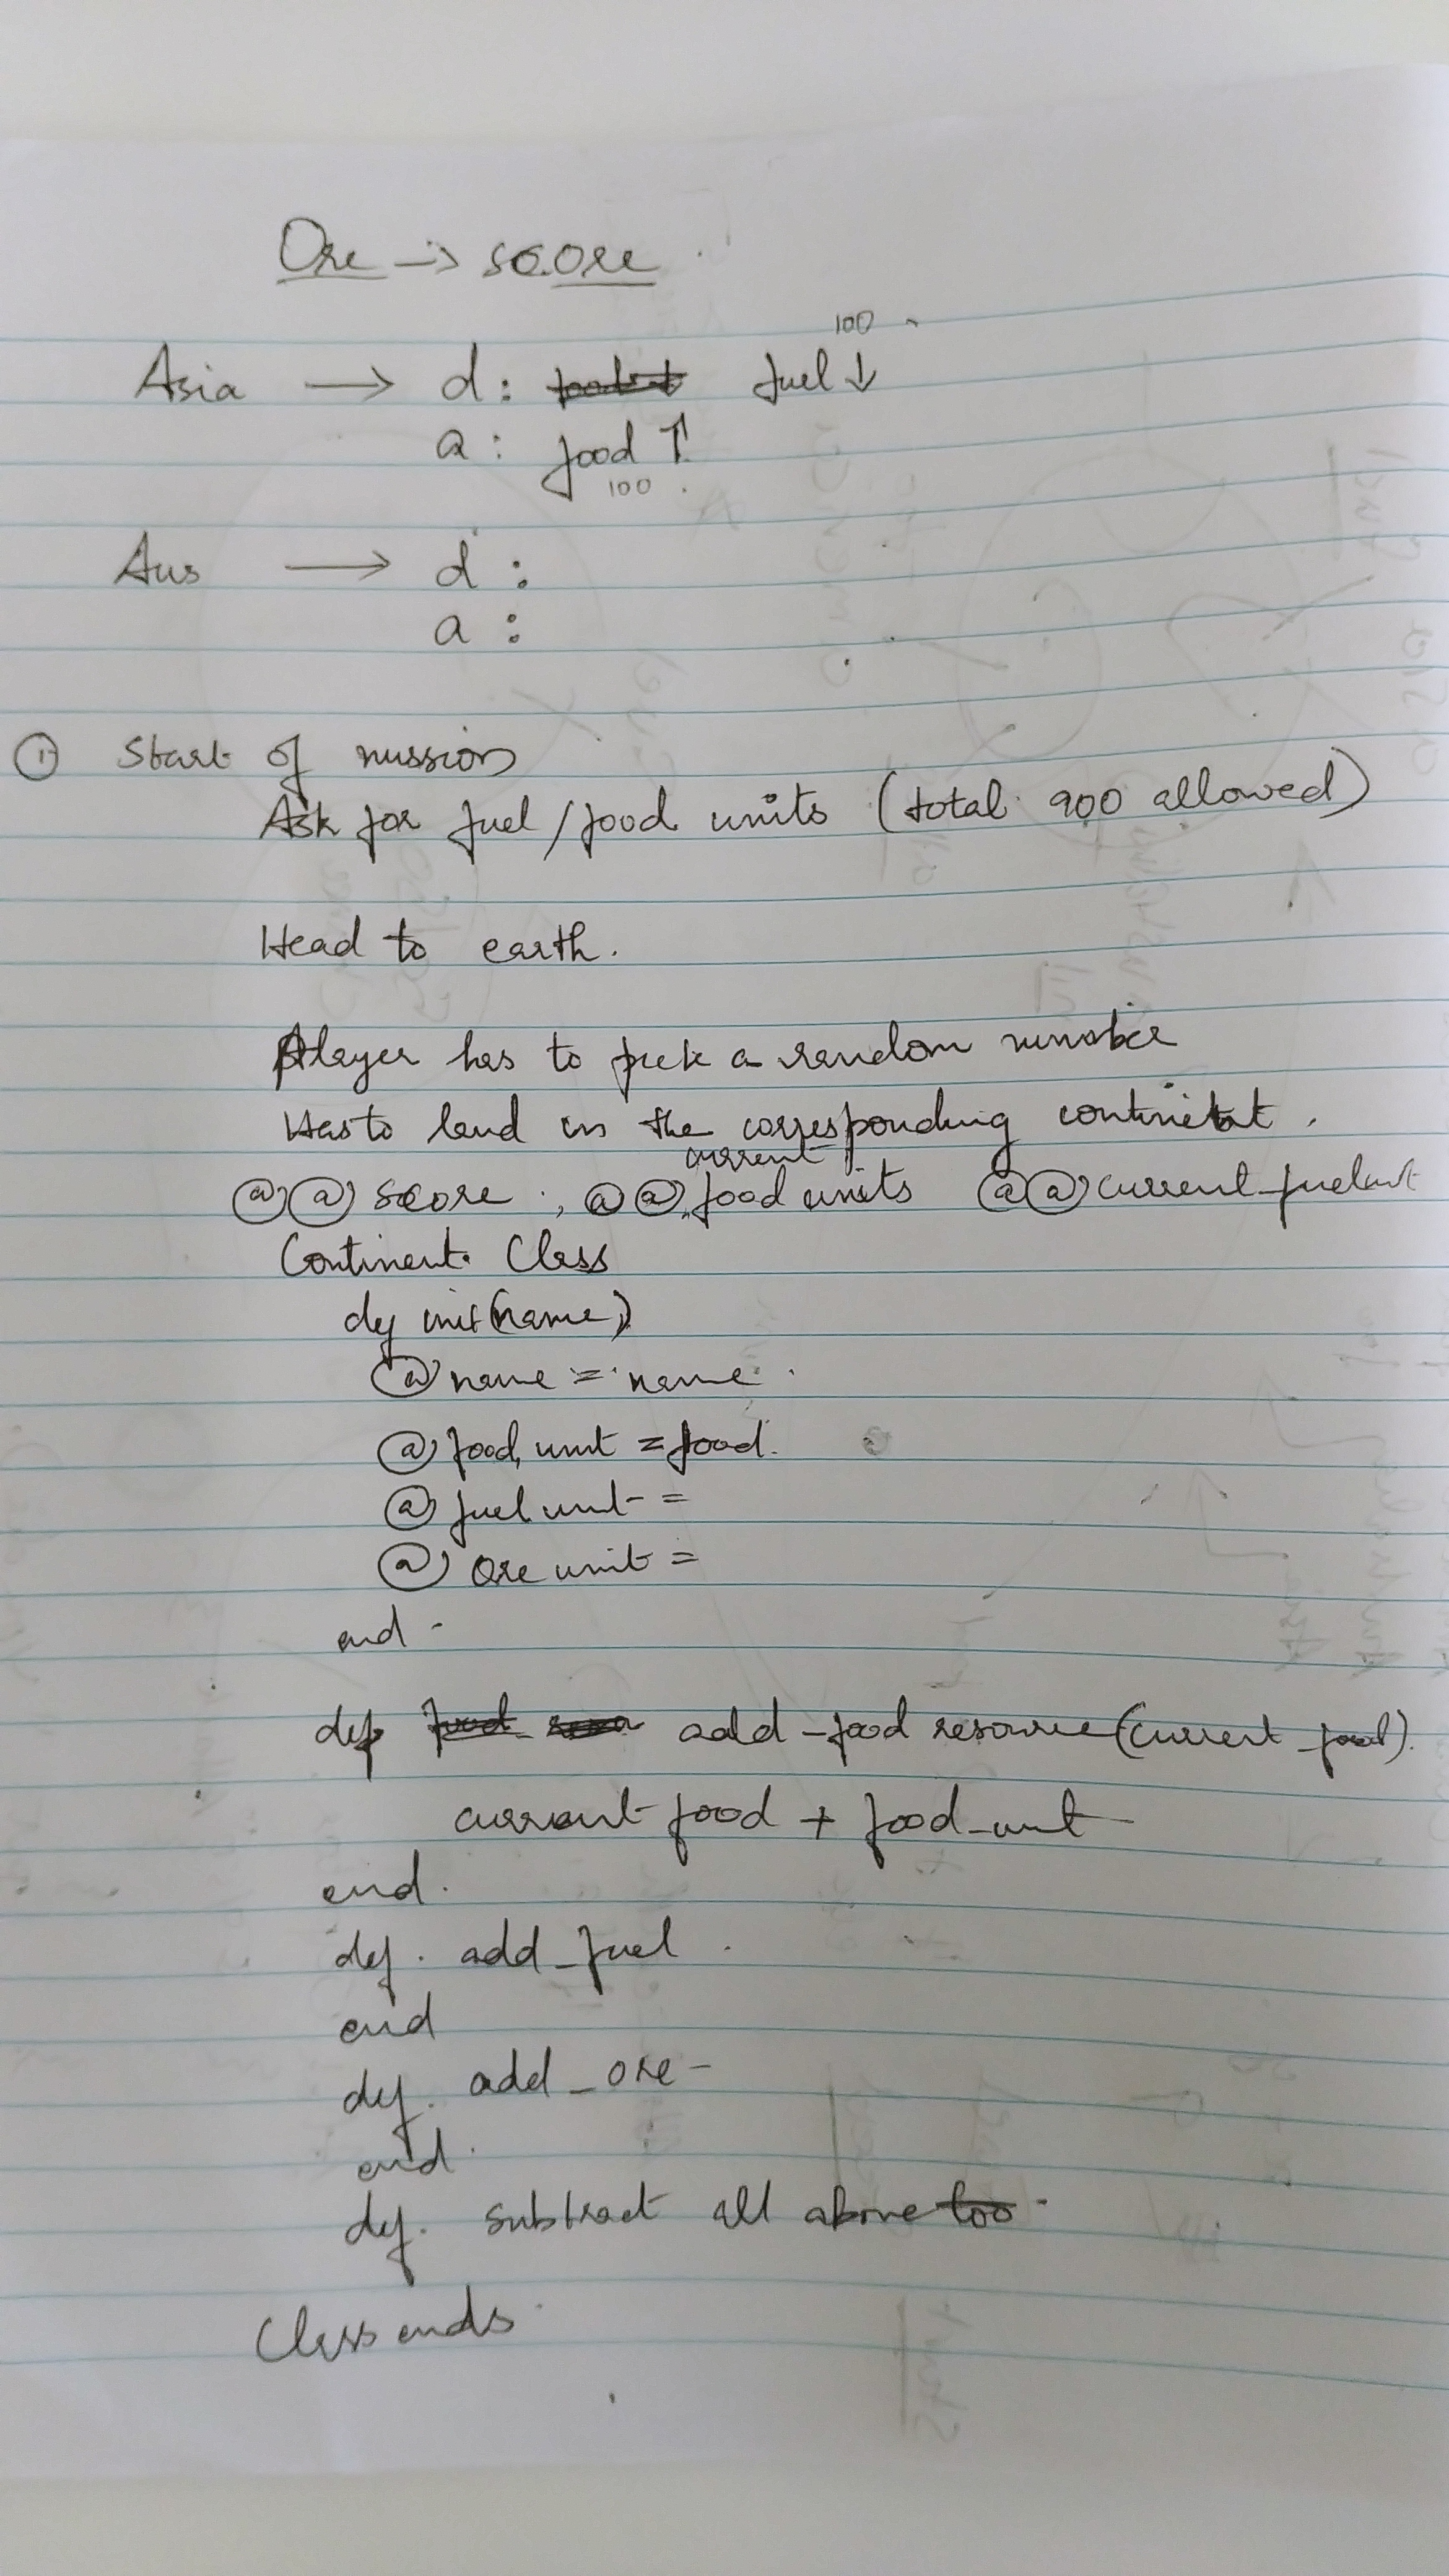 Ore → score
100
Asia → d: fuel ↓
a: food ↑
100
Aus → d:
a:
① Start of mission
Ask for fuel/food units (total 900 allowed)
Head to earth.
Player has to pick a random number
Has to land in the corresponding continent.
current
@@ score ; @@ food units @@ current_fuelunit
Continent Class
def init(name)
@ name = name
@ food unit = food.
@ fuel unit =
@ Ore unit =
end
def add_food resource(current_food).
current food + food_unit
end.
def. add_fuel
end
def. add_ore
end
def. subtract all above too
Class ends